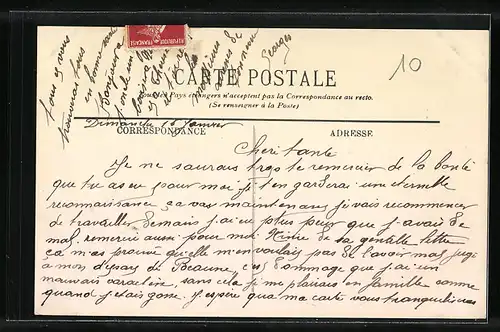 10
CARTE POSTALE
Tous les Pays étrangers n'acceptent pas la Correspondance au recto.
(Se renseigner à la Poste)
CORRESPONDANCE
ADRESSE
Dimanche 6 Janvier
Cherè tante
Je ne saurais trop te remercier de la bonté
que tu as eu pour moi je t'en garderai une éternelle
reconnaissance ça va maintenant je vais recommencer
de travailler demain j'ai eu plus peur que j'avais de
mal, remercie aussi pour moi de sa gentille lettre
ça m'as prouvé qu'elle m'en voulais pas de l'avoir mal jugé
à mon départ de Beaune, c'est dommage que j'ai un
mauvais caractère, sans cela je me plairais en famille comme
quand j'étais gosse. J'espère que ma carte vous tranquilisera
tous et vous
trouveras tous
en bonne santé
Bonjours à
tonton
Georges